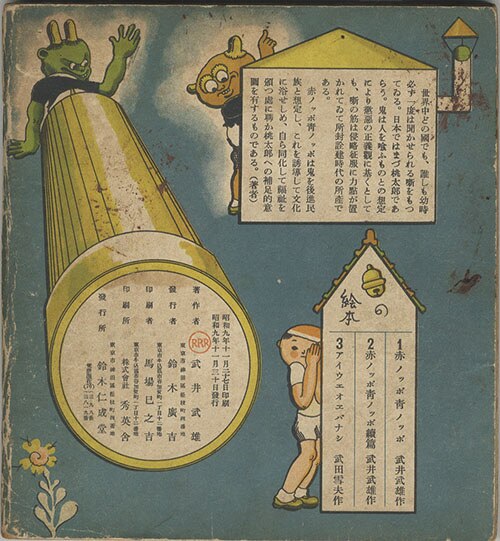 世界中どの國でも、誰しも幼時
必ず一度は聞かせられる噺をもつ
てゐる。日本ではまづ桃太郎であ
らう。鬼は人を喰ふものとの想定
により懲惡の正義觀に基くとして
も、噺の筋は侵略征服に力點が置
かれてゐて所詮封建時代の所產で
ある。
赤ノッポ青ノッポは鬼を後進民
族と想定し、これを誘導して文化
に浴せしめ、自ら同化して福祉を
頒つ處に聊か桃太郎への補足的意
圖を有するものである。（著者）
の
絵本
1 赤ノッポ青ノッポ 武井武雄作
2 赤ノッポ青ノッポ續篇 武井武雄作
3 アイウエオエバナシ 武田雪夫作
昭和九年十一月二十七日印刷
昭和九年十一月三十日發行
著作者 RRR 武井武雄
發行者 鈴木廣吉
印刷者 馬場巳之吉
印刷所 株式會社 秀英舍
發行所 鈴木仁成堂